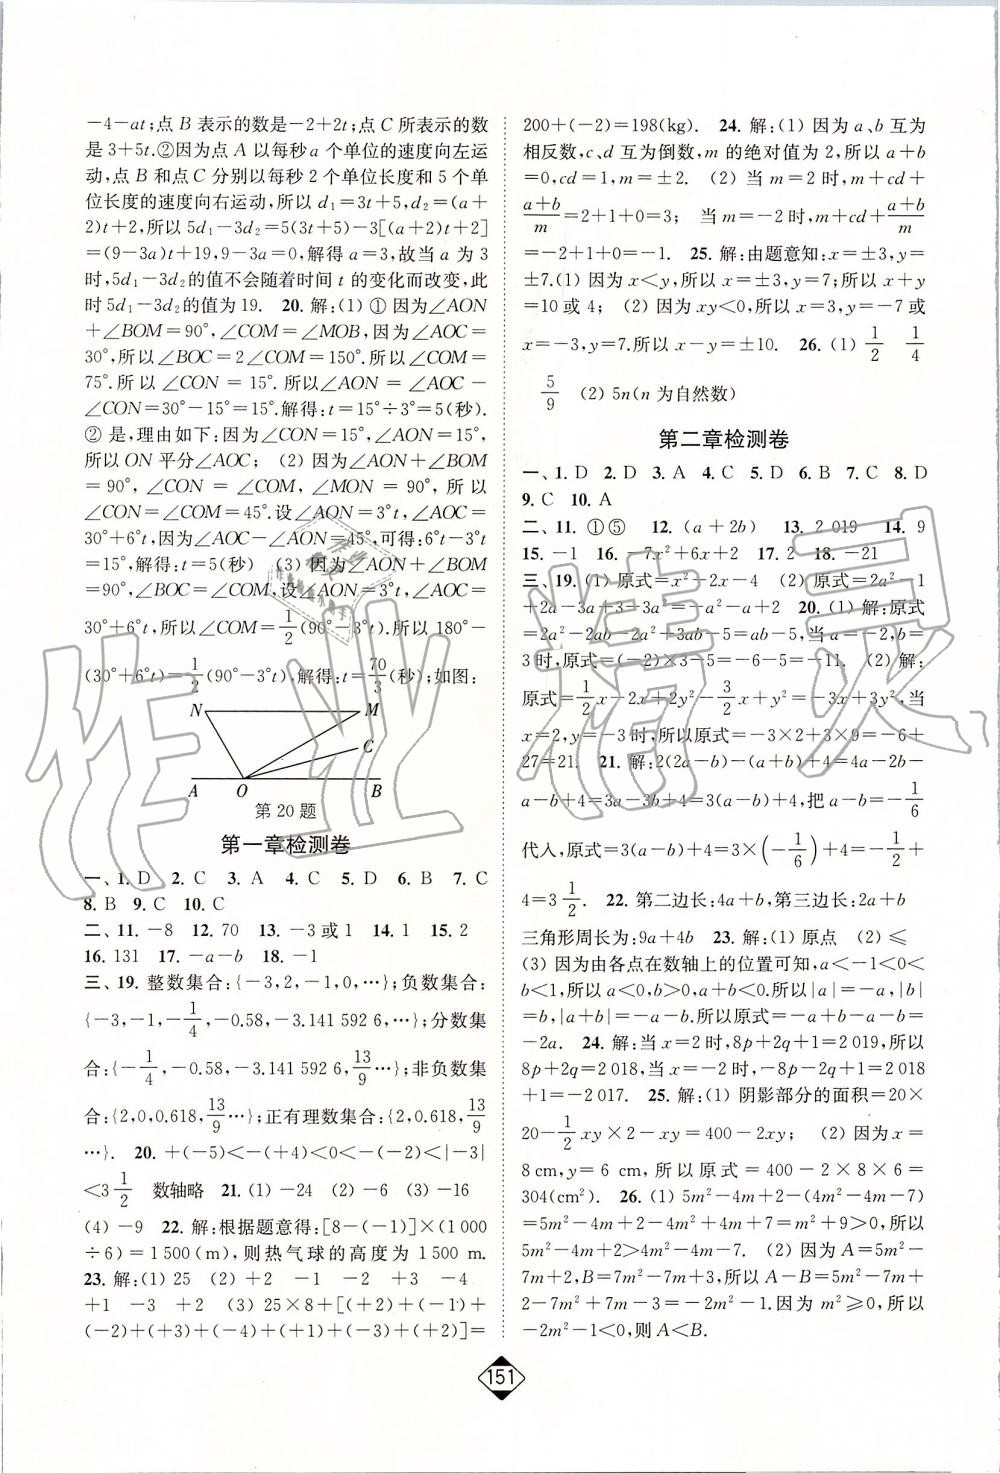 -4-at;点 B 表示的数是-2+2t;点 C 所表示的数
是 3+5t.②因为点 A 以每秒 a 个单位的速度向左运
动,点 B 和点 C 分别以每秒 2 个单位长度和 5 个单
位长度的速度向右运动,所以 d₁=3t+5,d₂=(a+
2)t+2,所以 5d₁-3d₂=5(3t+5)-3[(a+2)t+2]
=(9-3a)t+19,9-3a=0,解得 a=3,故当 a 为 3
时,5d₁-3d₂的值不会随着时间 t 的变化而改变,此
时 5d₁-3d₂的值为 19. 20. 解:(1) ① 因为∠AON
+∠BOM=90°,∠COM=∠MOB,因为∠AOC=
30°,所以∠BOC=2∠COM=150°.所以∠COM=
75°.所以∠CON=15°.所以∠AON=∠AOC-
∠CON=30°-15°=15°.解得:t=15°÷3°=5(秒).
② 是,理由如下:因为∠CON=15°,∠AON=15°,
所以 ON 平分∠AOC; (2) 因为∠AON+∠BOM
=90°,∠CON=∠COM,∠MON=90°,所以
∠CON=∠COM=45°.设∠AON=3°t,∠AOC=
30°+6°t,因为∠AOC-∠AON=45°,可得:6°t-3°t
=15°,解得:t=5(秒) (3) 因为∠AON+∠BOM
=90°,∠BOC=∠COM,设∠AON=3°t,∠AOC=
30°+6°t,所以∠COM=1/2(90°-3°t).所以 180°-
(30°+6°t)=1/2(90°-3°t),解得:t=70/3(秒);如图:
N M
C
A O B
第 20 题
第一章检测卷
一、1. D 2. C 3. A 4. C 5. D 6. B 7. C
8. B 9. C 10. C
二、11. -8 12. 70 13. -3 或 1 14. 1 15. 2
16. 131 17. -a-b 18. -1
三、19. 整数集合:{-3,2,-1,0,…};负数集合:
{-3,-1,-1/4,-0.58,-3.141 592 6,…};分数集
合:{-1/4,-0.58,-3.141 592 6,13/9…};非负数集
合:{2,0,0.618,13/9…};正有理数集合:{2,0.618,13/9
…}. 20. +(-5)<-(+4)<0<-(-2)<|-3|
<3 1/2 数轴略 21. (1) -24 (2) -6 (3) -16
(4) -9 22. 解:根据题意得:[8-(-1)]×(1 000
÷6)=1 500(m),则热气球的高度为 1 500 m.
23. 解:(1) 25 (2) +2 -1 -2 +3 -4
+1 -3 +2 (3) 25×8+[(+2)+(-1)+
(-2)+(+3)+(-4)+(+1)+(-3)+(+2)]=
200+(-2)=198(kg). 24. 解:(1) 因为 a、b 互为
相反数,c、d 互为倒数,m 的绝对值为 2,所以 a+b
=0,cd=1,m=±2. (2) 当 m=2 时,m+cd+
(a+b)/m=2+1+0=3; 当 m=-2 时,m+cd+(a+b)/m
=-2+1+0=-1. 25. 解:由题意知:x=±3,y=
±7.(1) 因为 x<y,所以 x=±3,y=7;所以 x+y
=10 或 4; (2) 因为 xy<0,所以 x=3,y=-7 或
x=-3,y=7.所以 x-y=±10. 26. (1) 1/2 1/4
5/9 (2) 5n(n 为自然数)
第二章检测卷
一、1. D 2. D 3. A 4. C 5. D 6. B 7. C 8. D
9. C 10. A
二、11. ①⑤ 12. (a+2b) 13. 2 019 14. 9
15. -1 16. -7x²+6x+2 17. 2 18. -21
三、19. (1) 原式=x²-2x-4 (2) 原式=2a²-1
+2a-3a+3-3a²=-a²-a+2 20. (1) 解:原式
=2a²-2ab-2a²+3ab-5=ab-5,当 a=-2,b=
3 时,原式=(-2)×3-5=-6-5=-11. (2) 解:
原式=1/2x-2x+2y²-3/2x+y²=-3x+3y²,当
x=2,y=-3 时,所以原式=-3×2+3×9=-6+
27=21. 21. 解:2(2a-b)-(a+b)+4=4a-2b-
a-b+4=3a-3b+4=3(a-b)+4,把 a-b=-1/6
代入,原式=3(a-b)+4=3×(-1/6)+4=-1/2+
4=3 1/2. 22. 第二边长:4a+b,第三边长:2a+b
三角形周长为:9a+4b 23. 解:(1) 原点 (2) ≤
(3) 因为由各点在数轴上的位置可知,a<-1<0<
b<1,所以 a<0,b>0,a+b<0.所以|a|=-a,|b|
=b,|a+b|=-a-b.所以原式=-a+b-a-b=
-2a. 24. 解:当 x=2 时,8p+2q+1=2 019,所以
8p+2q=2 018,当 x=-2 时,-8p-2q=-2 018
+1=-2 017. 25. 解:(1) 阴影部分的面积=20×
20-1/2xy×2-xy=400-2xy; (2) 因为 x=
8 cm,y=6 cm,所以原式=400-2×8×6=
304(cm²). 26. (1) 5m²-4m+2-(4m²-4m-7)
=5m²-4m+2-4m²+4m+7=m²+9>0,所以
5m²-4m+2>4m²-4m-7. (2) 因为 A=5m²-
7m+2,B=7m²-7m+3,所以 A-B=5m²-7m+
2-7m²+7m-3=-2m²-1.因为 m²≥0,所以
-2m²-1<0,则 A<B.
151
作业精灵